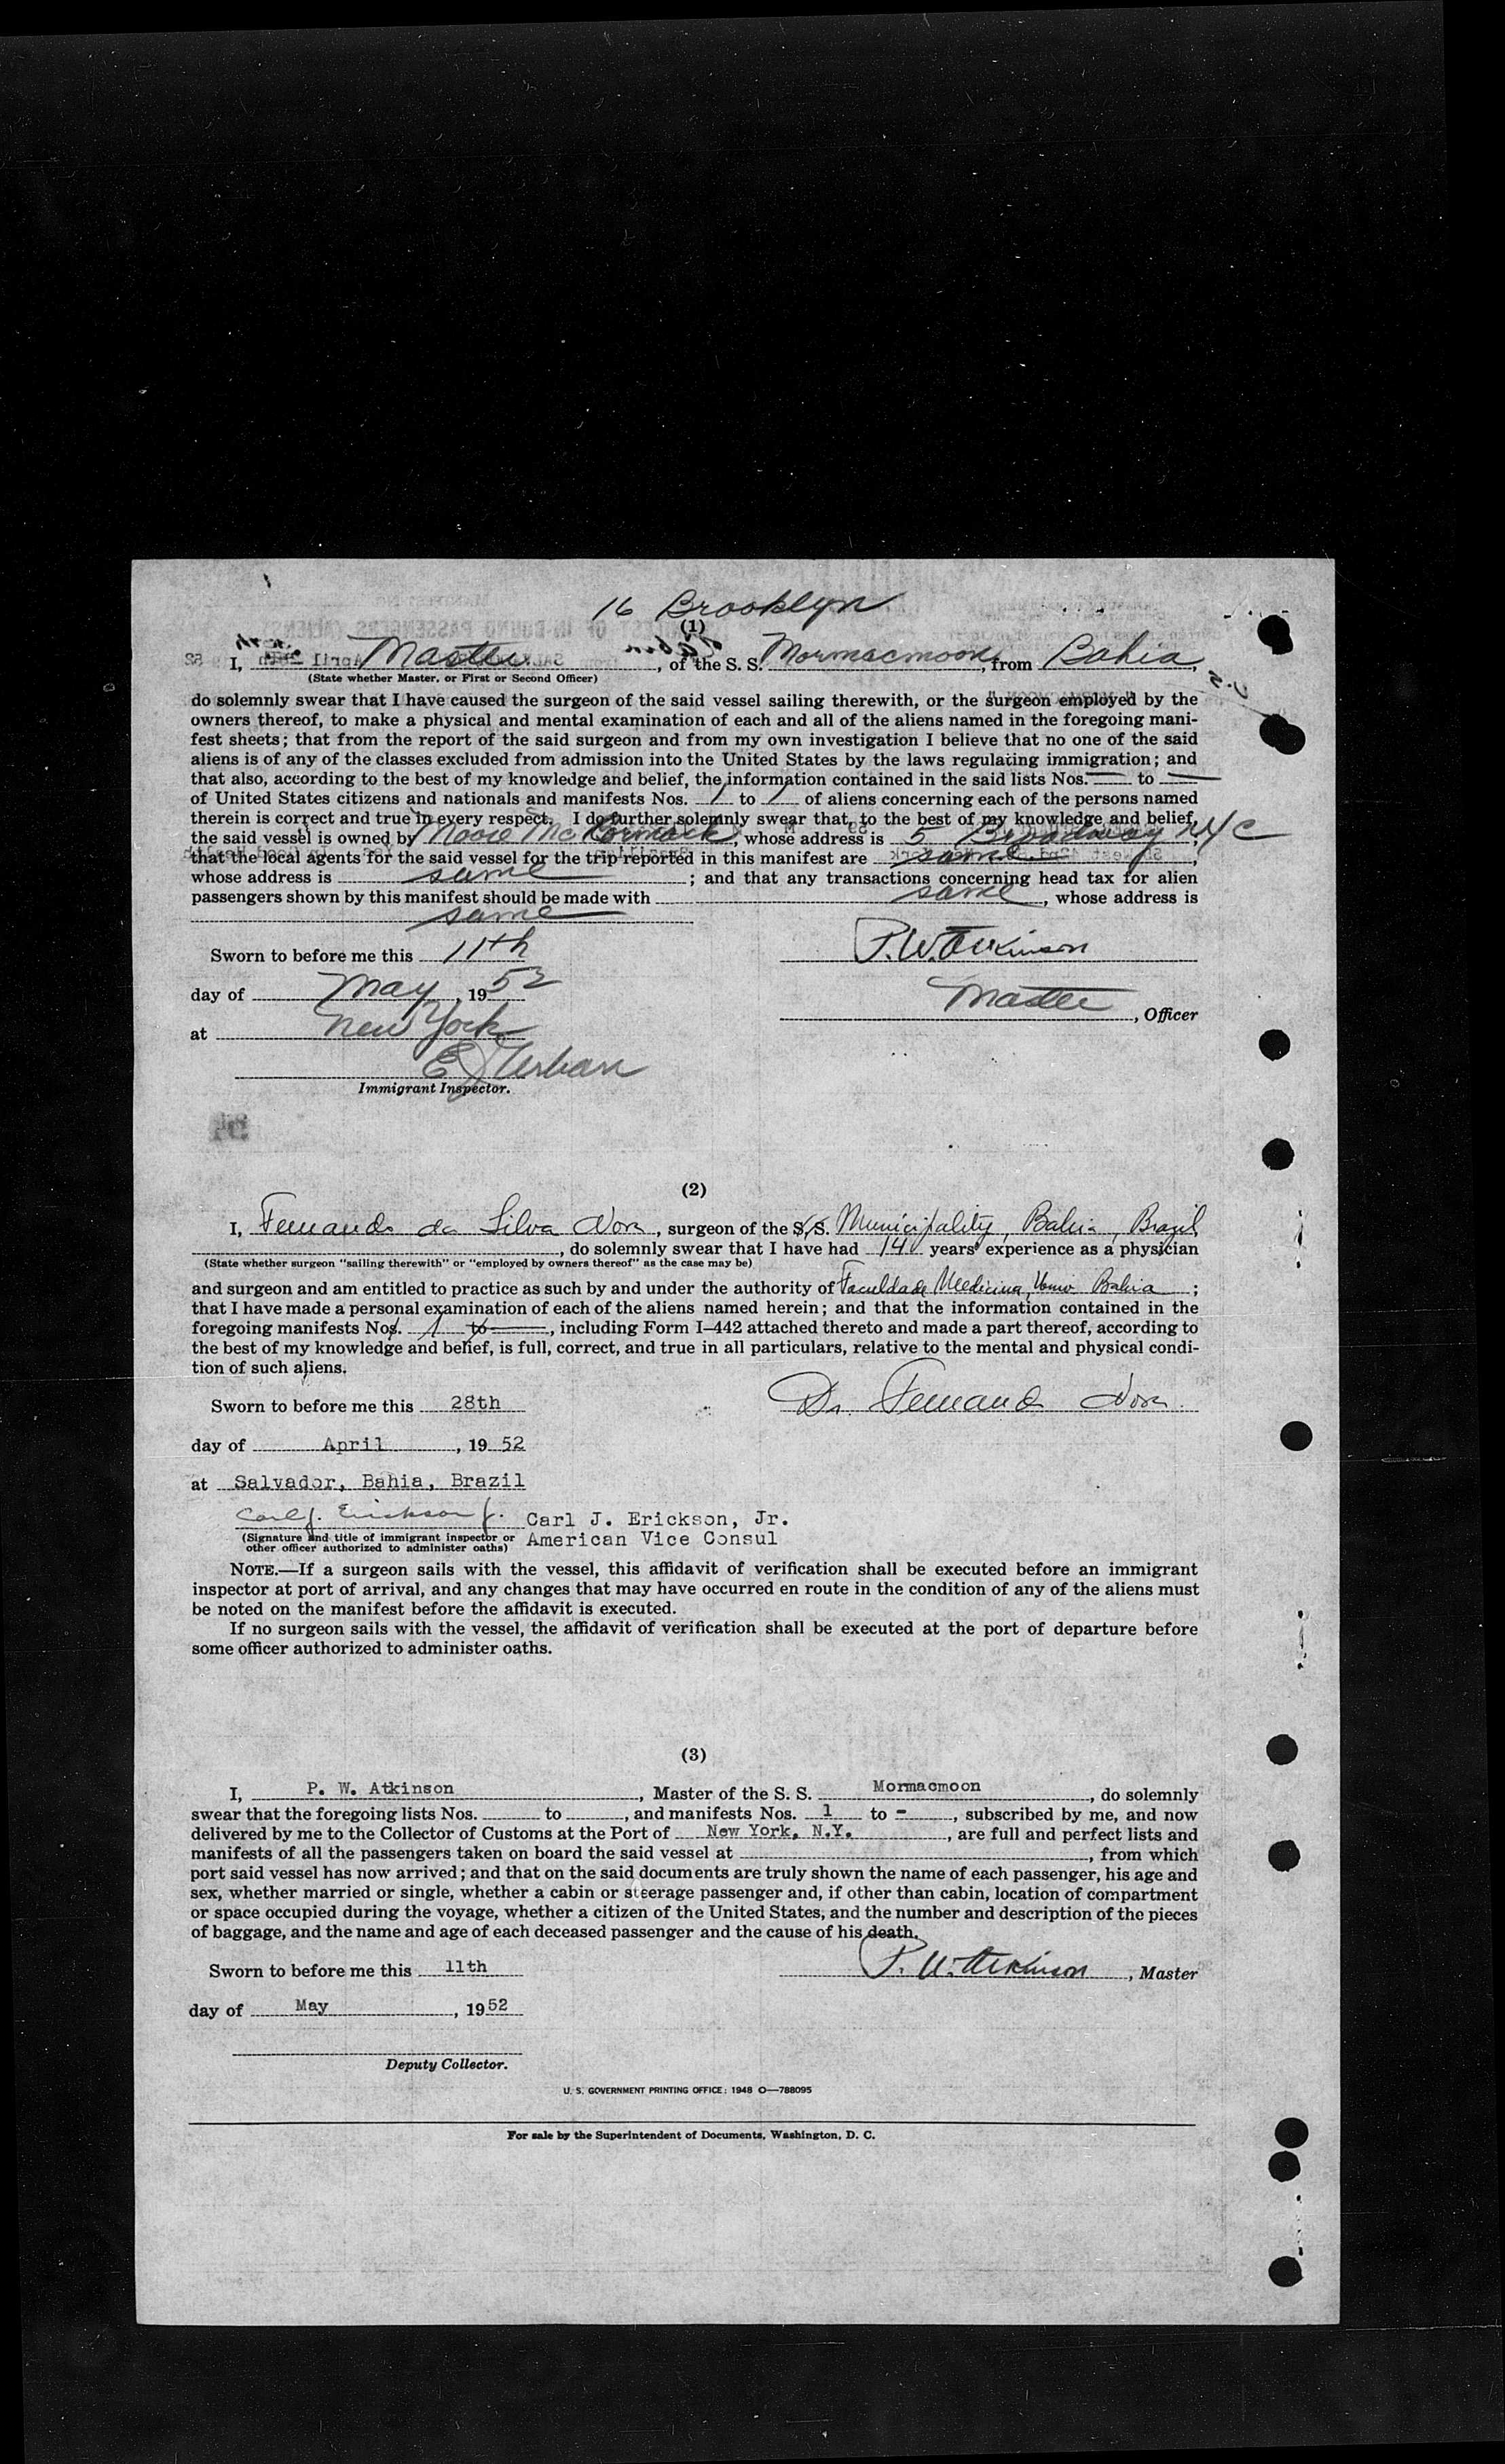 16 Brooklyn
(1)
I, Master, of the S. S. Mormacmoon, from Bahia,
(State whether Master, or First or Second Officer)
do solemnly swear that I have caused the surgeon of the said vessel sailing therewith, or the surgeon employed by the
owners thereof, to make a physical and mental examination of each and all of the aliens named in the foregoing mani-
fest sheets; that from the report of the said surgeon and from my own investigation I believe that no one of the said
aliens is of any of the classes excluded from admission into the United States by the laws regulating immigration; and
that also, according to the best of my knowledge and belief, the information contained in the said lists Nos. — to —
of United States citizens and nationals and manifests Nos. 1 to 1 of aliens concerning each of the persons named
therein is correct and true in every respect. I do further solemnly swear that, to the best of my knowledge and belief,
the said vessel is owned by Moore McCormack, whose address is 5 Broadway NYC;
that the local agents for the said vessel for the trip reported in this manifest are same,
whose address is same; and that any transactions concerning head tax for alien
passengers shown by this manifest should be made with same, whose address is
same
Sworn to before me this 11th P. W. Atkinson
day of May, 1952 Master, Officer
at New York
E J Urban
Immigrant Inspector.
(2)
I, Fernando da Silva Nora, surgeon of the S.S. Municipality, Bahia, Brazil
, do solemnly swear that I have had 14 years' experience as a physician
(State whether surgeon "sailing therewith" or "employed by owners thereof" as the case may be)
and surgeon and am entitled to practice as such by and under the authority of Faculdade Medicina, Univ. Bahia;
that I have made a personal examination of each of the aliens named herein; and that the information contained in the
foregoing manifests Nos. 1 to —, including Form I–442 attached thereto and made a part thereof, according to
the best of my knowledge and belief, is full, correct, and true in all particulars, relative to the mental and physical condi-
tion of such aliens.
Sworn to before me this 28th Dr. Fernando Nora
day of April, 1952
at Salvador, Bahia, Brazil
Carl J. Erickson Jr. Carl J. Erickson, Jr.
(Signature and title of immigrant inspector or American Vice Consul
other officer authorized to administer oaths)
NOTE.—If a surgeon sails with the vessel, this affidavit of verification shall be executed before an immigrant
inspector at port of arrival, and any changes that may have occurred en route in the condition of any of the aliens must
be noted on the manifest before the affidavit is executed.
If no surgeon sails with the vessel, the affidavit of verification shall be executed at the port of departure before
some officer authorized to administer oaths.
(3)
I, P. W. Atkinson, Master of the S. S. Mormacmoon, do solemnly
swear that the foregoing lists Nos. to , and manifests Nos. 1 to -, subscribed by me, and now
delivered by me to the Collector of Customs at the Port of New York, N.Y., are full and perfect lists and
manifests of all the passengers taken on board the said vessel at , from which
port said vessel has now arrived; and that on the said documents are truly shown the name of each passenger, his age and
sex, whether married or single, whether a cabin or steerage passenger and, if other than cabin, location of compartment
or space occupied during the voyage, whether a citizen of the United States, and the number and description of the pieces
of baggage, and the name and age of each deceased passenger and the cause of his death.
Sworn to before me this 11th P. W. Atkinson, Master
day of May, 1952
Deputy Collector.
U. S. GOVERNMENT PRINTING OFFICE: 1948 O—788095
For sale by the Superintendent of Documents, Washington, D. C.